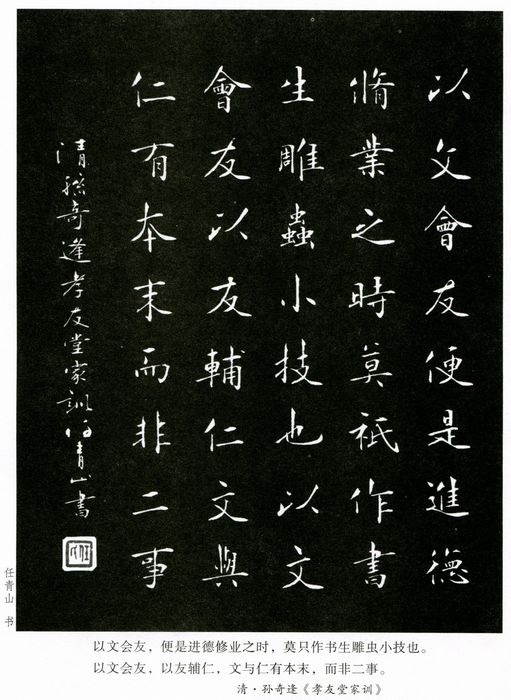 以文會友便是進德
脩業之時莫祇作書
生雕蟲小技也以文
會友以友輔仁文與
仁有本末而非二事
清孫奇逢孝友堂家訓任青山書
任青山 书
以文会友，便是进德修业之时，莫只作书生雕虫小技也。
以文会友，以友辅仁，文与仁有本末，而非二事。
清·孙奇逢《孝友堂家训》